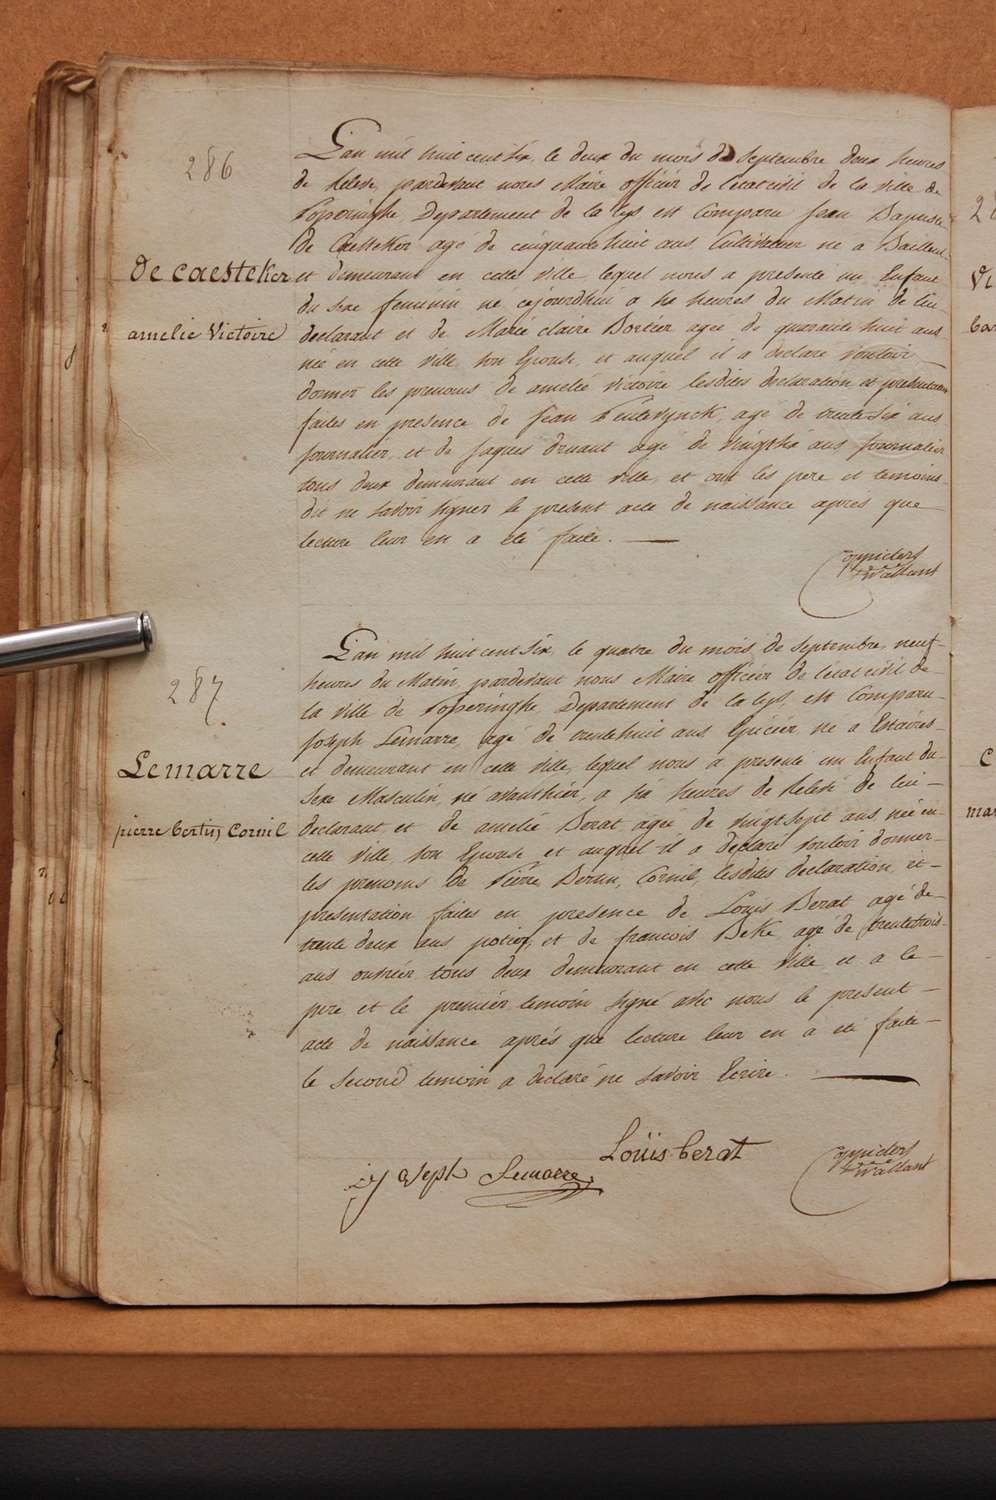 286
De Caesteker
amelie Victoire
L'an mil huit cent six, le deux du mois de Septembre deux heures
de Relevé, pardevant nous Maire officier de l'état civil de la ville de
Poperinghe, Departement de la Lys est Comparu Jean Baptiste
de Caesteker agé de cinquante huit ans, Cultivateur né a Bailleul
et demeurant en cette ville lequel nous a presenté un Enfant
du sexe feminin né cejourdhui a six heures du Matin de lui
declarant et de Marie claire Bortier agée de quarante huit ans
née en cette ville, son Epouse, et auquel il a declaré vouloir
donner les prenoms de amelié victoire lesdites declaration et presentation
faites en presence de Jean agé de trente six ans
journalier, et de Jaques druant agé de vingt six ans journalier
tous deux demeurant en cette ville, et ont les pere et temoins
dit ne savoir signer le present acte de naissance aprés que
lecture leur en a été faite.
287.
Lemarre
pierre bertin Cornil
L'an mil huit cent six, le quatre du mois de Septembre, neuf
heures du Matin, pardevant nous Maire officier de l'état civil de
la ville de Poperinghe, Departement de la Lys, est Comparu
Joseph Lemarre, agé de trente huit ans Epicier né a Estaires
et demeurant en cette ville, lequel nous a presenté un Enfant du
Sexe Masculin, né avanthier, a six heures de Relevé de lui
declarant, et de amelié Berat agée de vingt sept ans née en
cette ville, son Epouse et auquel il a declaré vouloir donner
les prenoms de Pierre, Bertin, Cornil, lesdites declaration, et
presentation, faites en presence de Louis Berat agé de
trente deux ans potier, et de francois Beke agé de trente trois
ans ouvrier tous deux demeurant en cette ville et a le
pere et le premier temoin signé avec nous le present
acte de naissance aprés que lecture leur en a été faite
le second temoin a declaré ne savoir Ecrire.
Louis berat
Joseph Lemarre